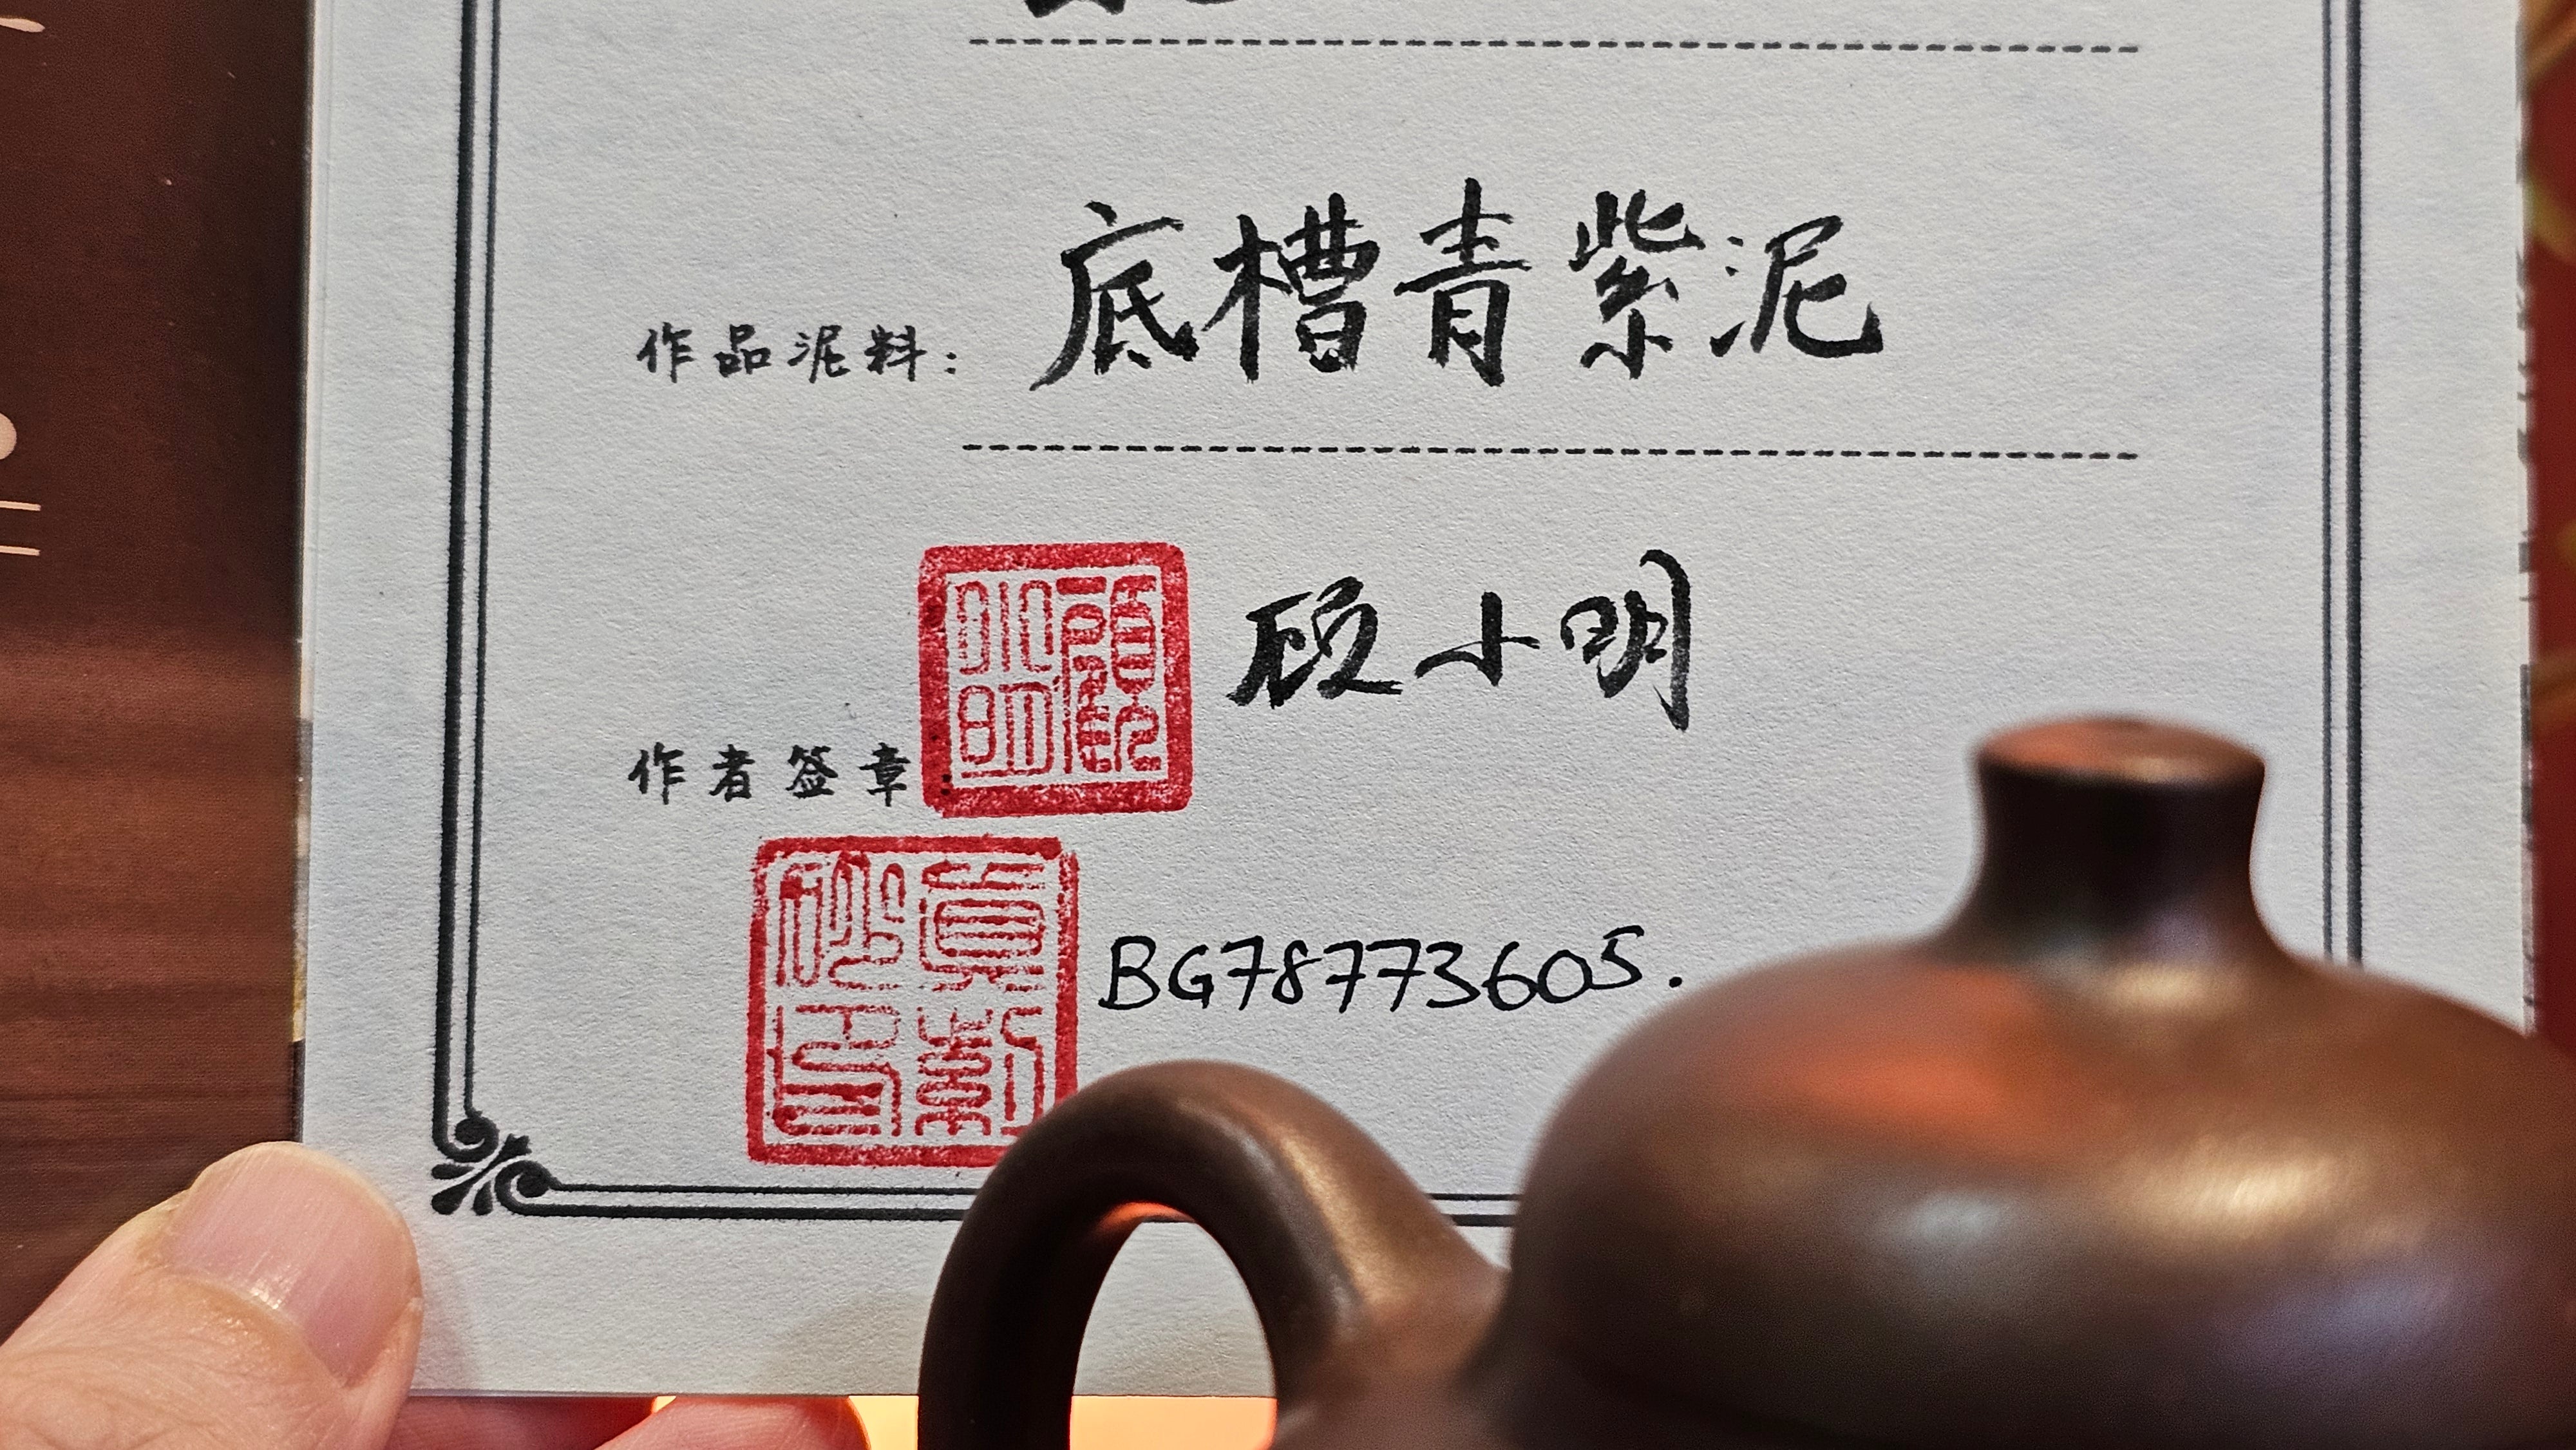 作品泥料：底槽青紫泥
顾小明
作者签章：
顧小明
BG78773605.